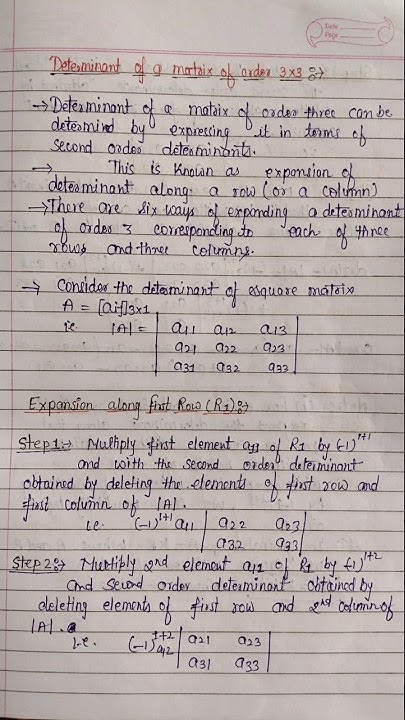 Date
Page
Determinant of a matrix of order 3×3 :→
→ Determinant of a matrix of order three can be
determind by expressing it in terms of
second order determinants.
→ This is known as expansion of
determinant along a row (or a column)
→ There are six ways of expanding a determinant
of order 3 corresponding to each of three
rows and three columns.
→ Consider the determinant of asquare matrix
A = [aij]3×1
i.e. |A| = | a11 a12 a13 |
a21 a22 a23
a31 a32 a33
Expansion along first Row (R1):→
Step1:→ Multiply first element a11 of R1 by (-1)^1+1
and with the second order determinant
obtained by deleting the elements of first row and
first column of |A|.
i.e. (-1)^1+1 a11 | a22 a23 |
a32 a33
Step2:→ Multiply 2nd element a12 of R1 by (-1)^1+2
and second order determinant obtained by
deleting elements of first row and 2nd column of
|A|.
i.e. (-1)^1+2 a12 | a21 a23 |
a31 a33